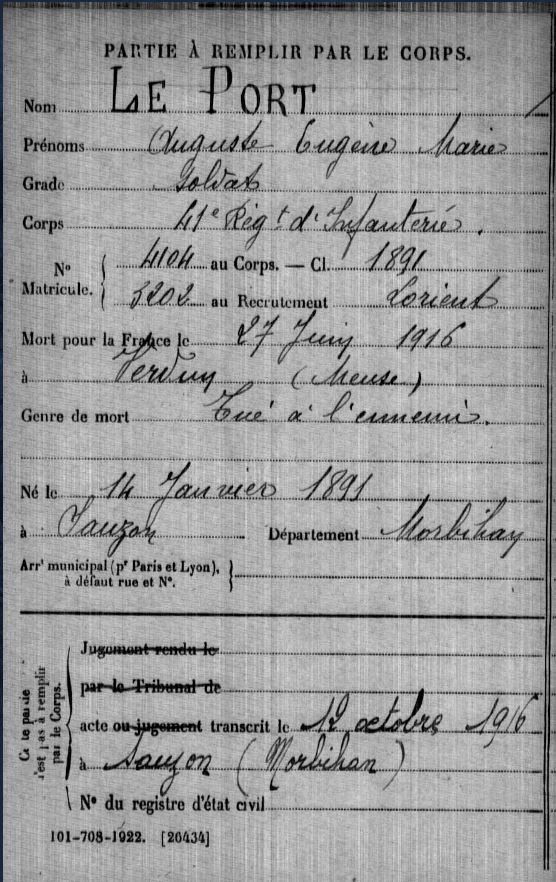 PARTIE À REMPLIR PAR LE CORPS.
Nom LE PORT
Prénoms Auguste Eugène Marie
Grade Soldat
Corps 41e Régt d'Infanterie.
No Matricule. 4104 au Corps. — Cl. 1891
5202 au Recrutement Lorient
Mort pour la France le 27 Juin 1916
à Verdun (Meuse)
Genre de mort Tué à l'ennemi.
Né le 14 Janvier 1891
à Sauzon Département Morbihan
Arrt municipal (pr Paris et Lyon),
à défaut rue et No.
Jugement rendu le
par le Tribunal de
acte ou jugement transcrit le 12 octobre 1916
à Sauzon (Morbihan)
No du registre d'état civil
Ce te partie
n'est pas à remplir
par le Corps.
101-708-1922. [26434]